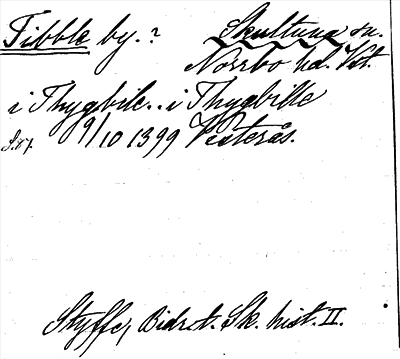 Tibble by.? Skultuna sn.
Norrbo hd. Vst.
i Thygbile.. i Thygbille
S. 87. 9/10 1399 Vesterås.
Styffe, Bidr. t. Sk. hist. II.